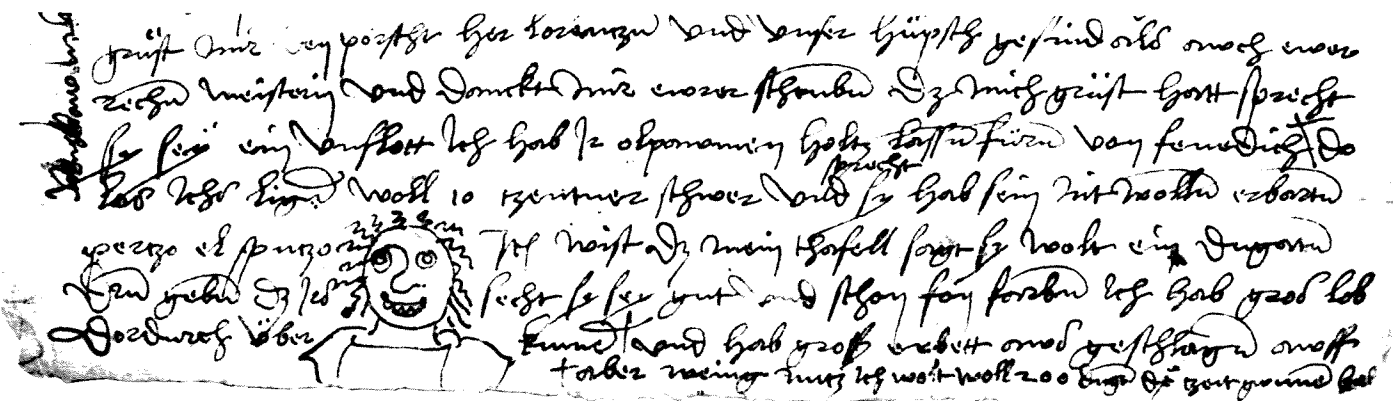 grüst mir porscht her lorenczn und unser hüpsch gesind als awch ewer
rechn meisterin und danckt mir ewrer schtubn dz mich grüst hatt sprecht
sy sey ein unflott Ich hab Ir olpawmen holtz lassn fürn von fenedich do
los Ichs lign woll 10 tzentner schwer und sprecht sy hab sein nit wolln erbartn
pertzo el sputzo Ist wist dz mein thafell sagt sy wolt ein dugatn
drum gebn dz Irs secht sy sey gut und schon fon farbn Ich hab gros lob
dordurch über kumen und hab gross erbett aws geschlagn awff
aber weing nutz Ich wolt woll 200 dugn dy tzeit gwunen